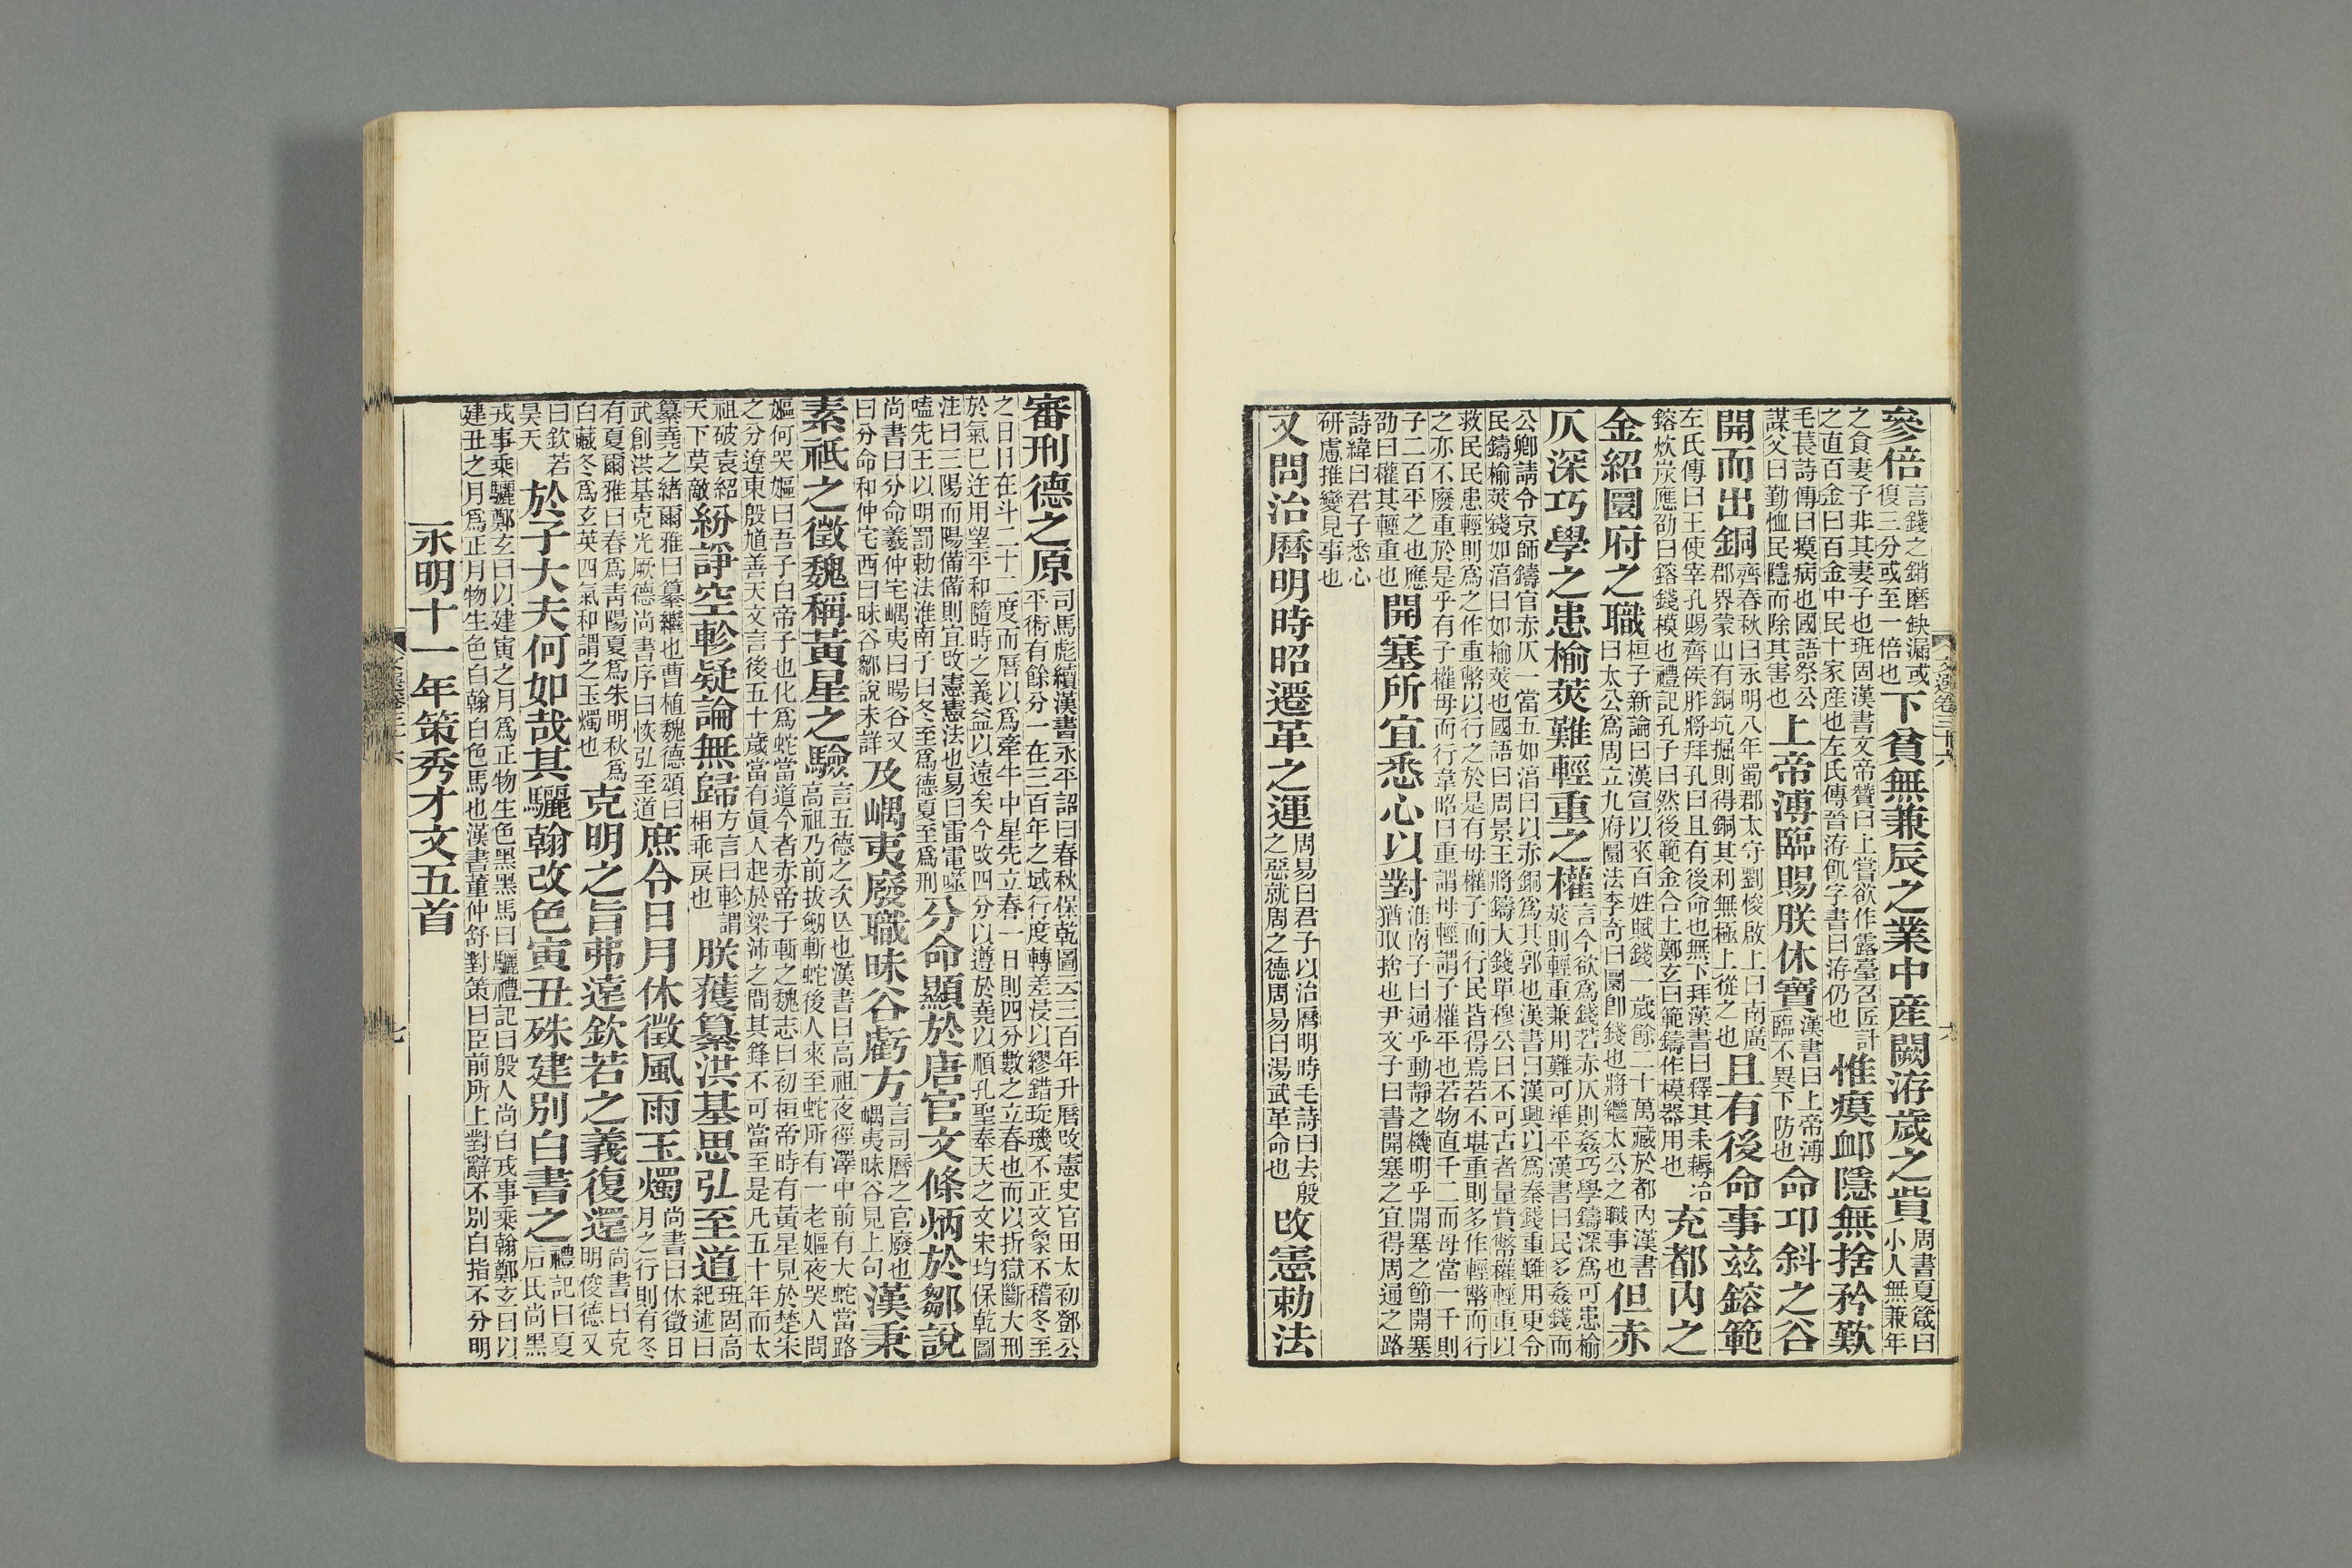 參倍言錢之銷磨缺漏或復三分或至一倍也下貧無兼辰之業中産闕洊歲之貲周書夏箴曰小人無兼年
之食妻子非其妻子也班固漢書文帝贊曰上嘗欲作露臺召匠計之直百金曰百金中民十家産也左氏傳晉洊飢字書曰洊仍也惟瘼卹隱無捨矜歎
毛萇詩傳曰瘼病也國語祭公謀父曰勤恤民隱而除其害也上帝溥臨賜朕休寶漢書曰上帝溥臨不異下防也命邛斜之谷
開而出銅齊春秋曰永明八年蜀郡太守劉悛啟上曰南廣郡界蒙山有銅坑掘則得銅其利無極上從之也且有後命事茲鎔範
左氏傳曰王使宰孔賜齊侯胙將拜孔曰且有後命也無下拜漢書曰釋其耒耨冶鎔炊炭應劭曰鎔錢模也禮記孔子曰然後範金合土鄭玄曰範鑄作模器用也充都內之
金紹圜府之職桓子新論曰漢宣以來百姓賦錢一歲餘二十萬藏於都內漢書曰太公爲周立九府圜法李奇曰圜卽錢也將繼太公之職事也但赤
仄深巧學之患榆莢難輕重之權言今欲爲錢若赤仄則姦巧學鑄深爲可患榆莢則輕重兼用難可準平漢書曰民多姦錢而
公卿請令京師鑄官赤仄一當五如淳曰以赤銅爲其郭也漢書曰漢興以爲秦錢重難用更令民鑄榆莢錢如淳曰如榆莢也國語曰周景王將鑄大錢單穆公曰不可古者量貲幣權輕重以
救民民患輕則爲之作重幣以行之於是有母權子而行民皆得焉若不堪重則多作輕幣而行之亦不廢重於是乎有子權母而行韋昭曰重謂母輕謂子權平也若物直千二而母當一千則
子二百平之也應劭曰權其輕重也開塞所宜悉心以對淮南子曰通乎動靜之機明乎開塞之節開塞猶取捨也尹文子曰書開塞之宜得周通之路
詩緯曰君子悉心研慮推變見事也
又問治曆明時昭遷革之運周易曰君子以治曆明時毛詩曰去殷之惡就周之德周易曰湯武革命也改憲勅法
審刑德之原司馬彪續漢書永平詔曰春秋保乾圖云三百年升曆改憲史官田太初鄧公平術有餘分一在三百年之域行度轉差浸以繆錯琁璣不正文象不稽冬至
之日日在斗二十二度而曆以爲牽牛中星先立春一日則四分數之立春也而以折獄斷大刑於氣已迕用望平和隨時之義益以遠矣今改四分以遵於堯以順孔聖奉天之文宋均保乾圖
注曰三陽而陽備備則宜改憲憲法也易曰雷電噬嗑先王以明罰勅法淮南子曰冬至爲德夏至爲刑分命顯於唐官文條炳於鄒說
尚書曰分命羲仲宅嵎夷曰暘谷又曰分命和仲宅西曰昧谷鄒說未詳及嵎夷廢職昧谷虧方言司曆之官廢也嵎夷昧谷見上句漢秉
素祇之徵魏稱黃星之驗言五德之次㔫也漢書曰高祖夜徑澤中前有大蛇當路高祖乃前拔劒斬蛇後人來至蛇所有一老嫗夜哭人問
嫗何哭嫗曰吾子白帝子也化爲蛇當道今者赤帝子斬之魏志曰初桓帝時有黃星見於楚宋之分遼東殷馗善天文言後五十歲當有眞人起於梁沛之間其鋒不可當至是凡五十年而太
祖破袁紹天下莫敵紛諍空軫疑論無歸方言曰軫謂相乖戾也朕獲纂洪基思弘至道班固高紀述曰
纂堯之緒爾雅曰纂繼也曹植魏德頌曰武創洪基克光厥德尚書序曰恢弘至道庶令日月休徵風雨玉燭尚書曰休徵日月之行則有冬
有夏爾雅曰春爲青陽夏爲朱明秋爲白藏冬爲玄英四氣和謂之玉燭也克明之旨弗遠欽若之義復還尚書曰克明俊德又
曰欽若昊天於子大夫何如哉其驪翰改色寅丑殊建別白書之禮記曰夏后氏尚黑
戎事乘驪鄭玄曰以建寅之月爲正物生色黑黑馬曰驪禮記曰殷人尚白戎事乘翰鄭玄曰以建丑之月爲正月物生色白翰白色馬也漢書董仲舒對策曰臣前所上對辭不別白指不分明
永明十一年策秀才文五首
七